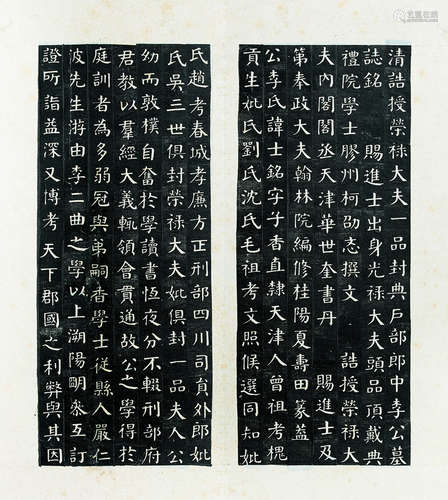 清誥授榮祿大夫一品封典戶部郎中李公墓
誌銘　賜進士出身光祿大夫頭品頂戴典
禮院學士膠州柯劭忞撰文　誥授榮祿大
夫內閣閣丞天津華世奎書丹　賜進士及
第奉政大夫翰林院編修桂陽夏壽田篆蓋
公李氏諱士銘字子香直隸天津人曾祖考
貢生妣氏劉氏沈氏毛祖考文照候選同知妣
氏趙考春城孝廉方正刑部四川司員外郎妣
氏吳三世俱封榮祿大夫妣俱封一品夫人公
幼而敦樸自奮於學讀書恆夜分不輟刑部府
君教以羣經大義輒領會貫通故公之學得於
庭訓者為多弱冠與弟嗣香學士從縣人嚴仁
波先生游由李二曲之學以上溯陽明參互訂
證所詣益深又博考　天下郡國之利弊與其因